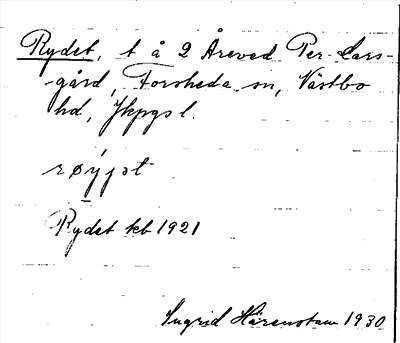 Rydet, t å 2 Åreved Per-Lars-
gård, Forsheda sn, Västbo
hd, Jkpgs l.
Rydet kb 1921
Ingrid Härenstam 1930